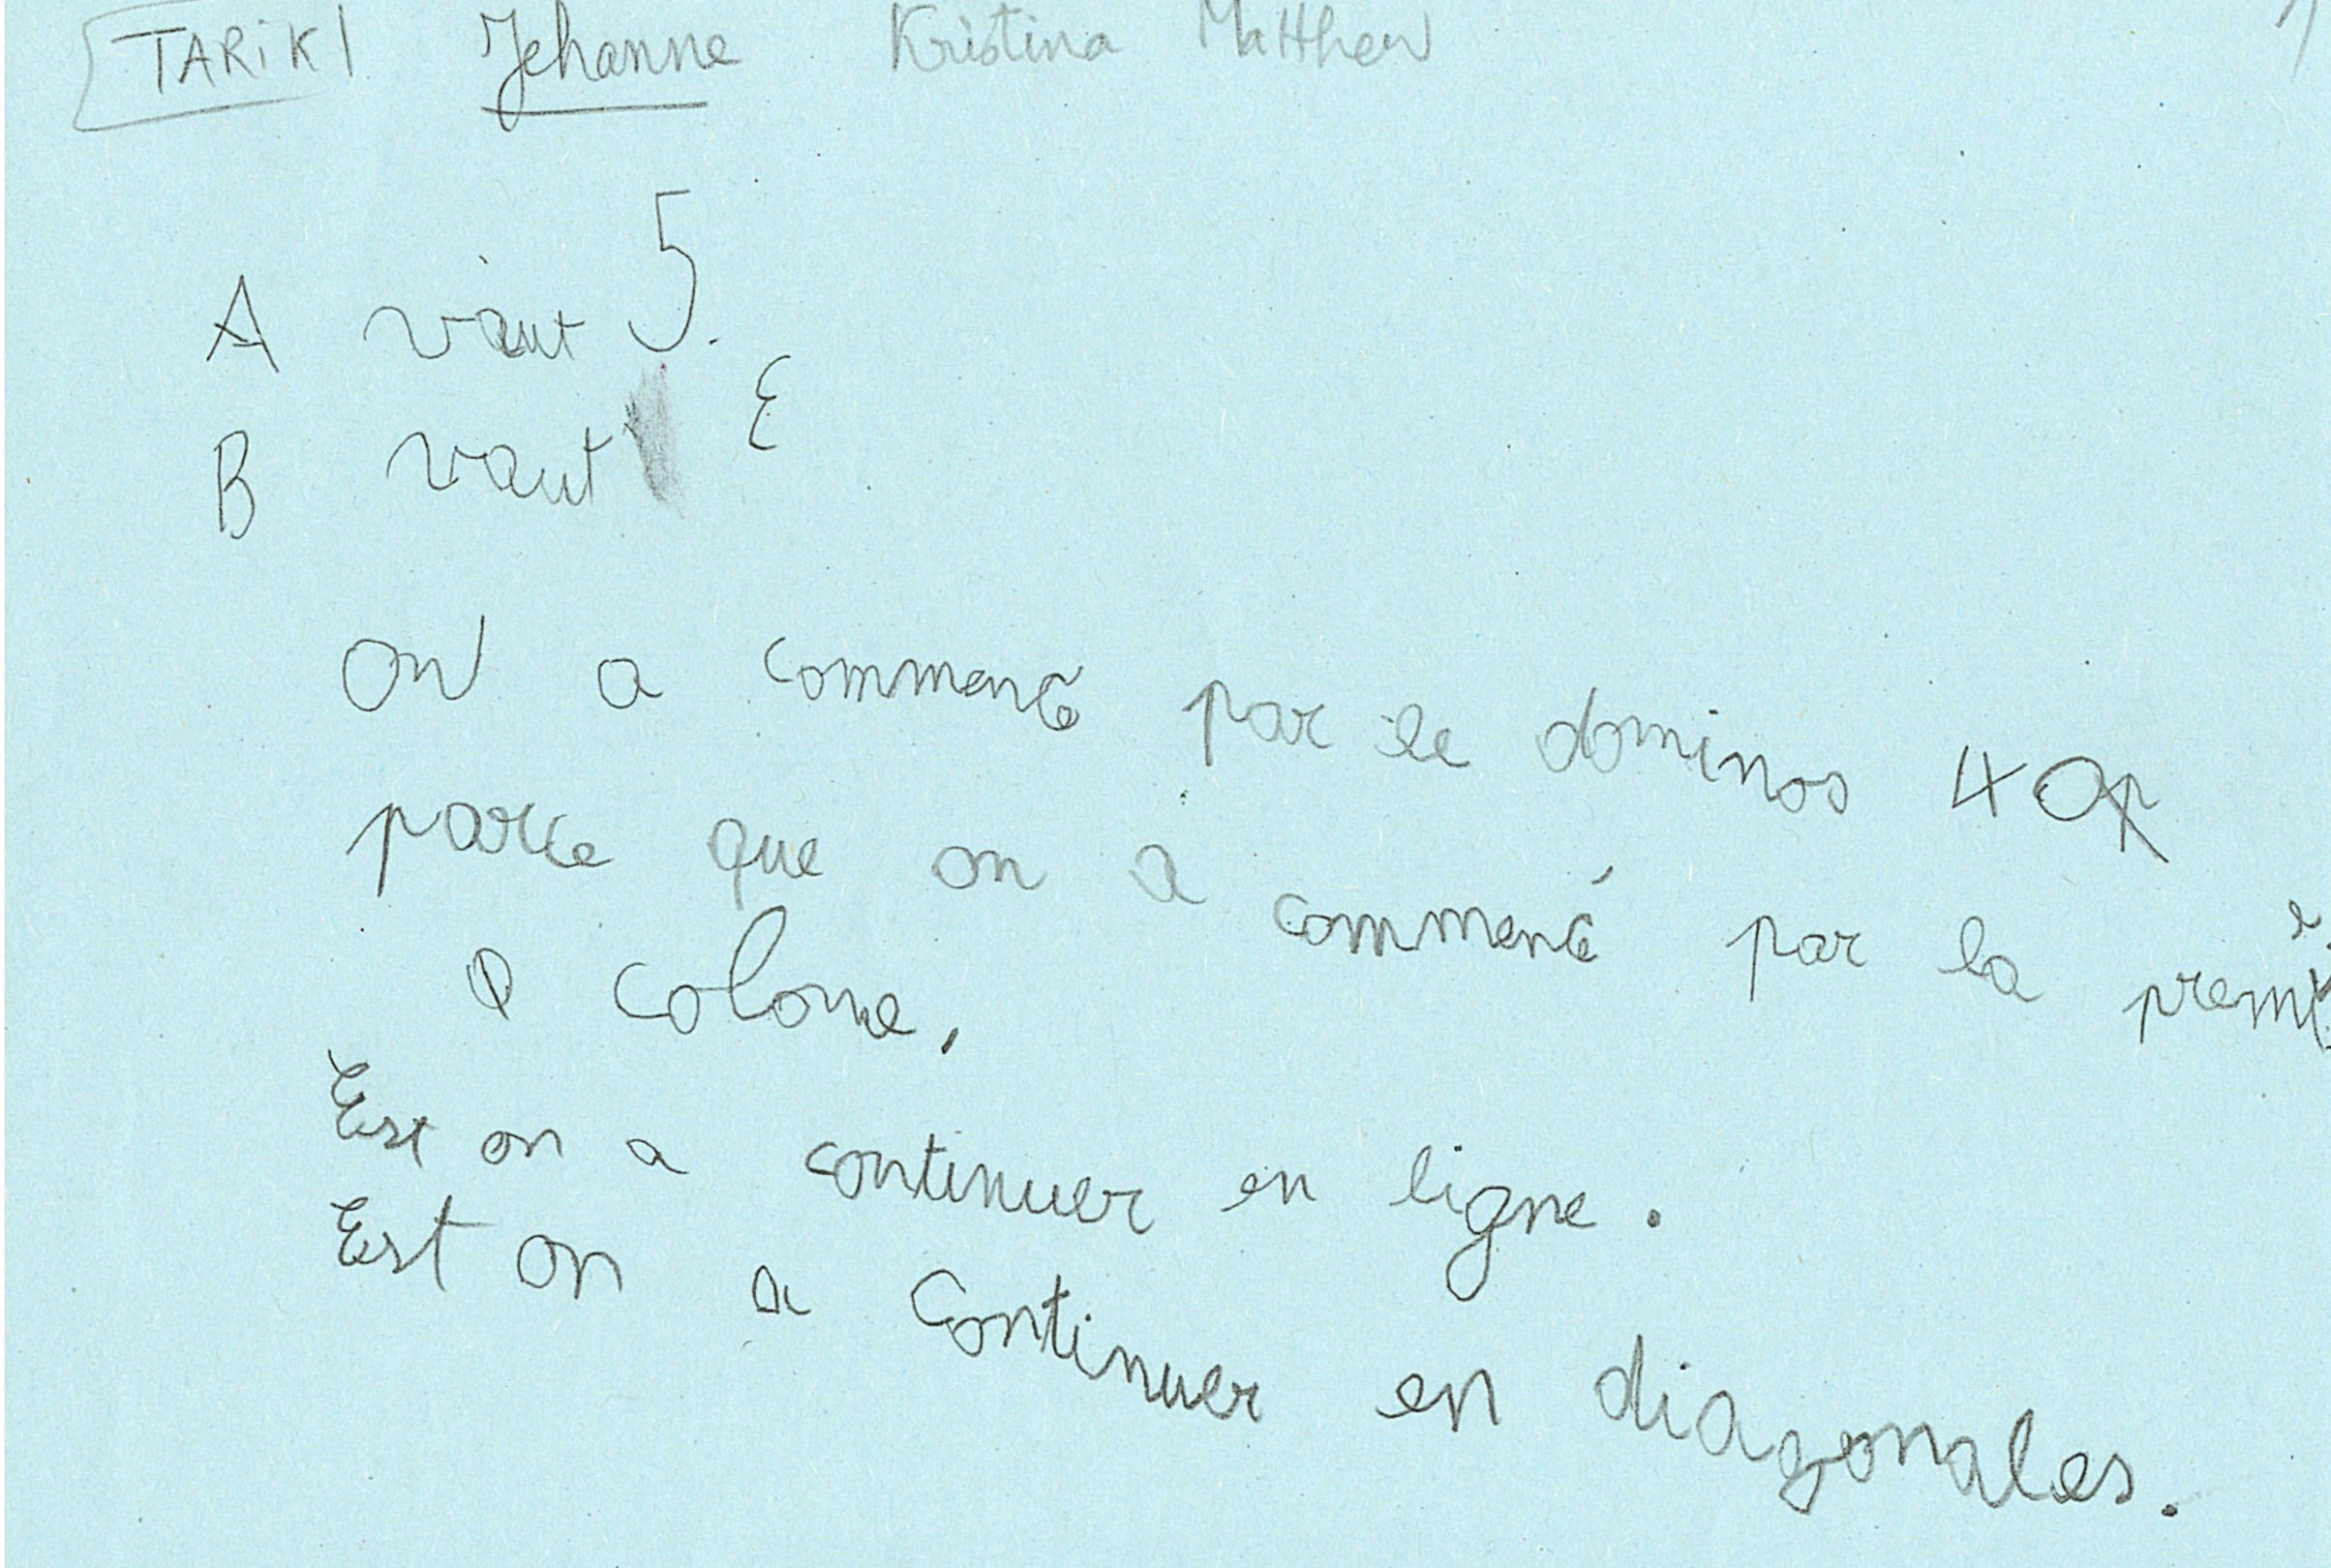 TARIK Jehanne Kristina Matthew
A vaut 5.
B vaut 3
On a commencé par le dominos 4
parce que on a commencé par la premiè
colone.
Est on a continuer en ligne.
Est on a continuer en diagonales.